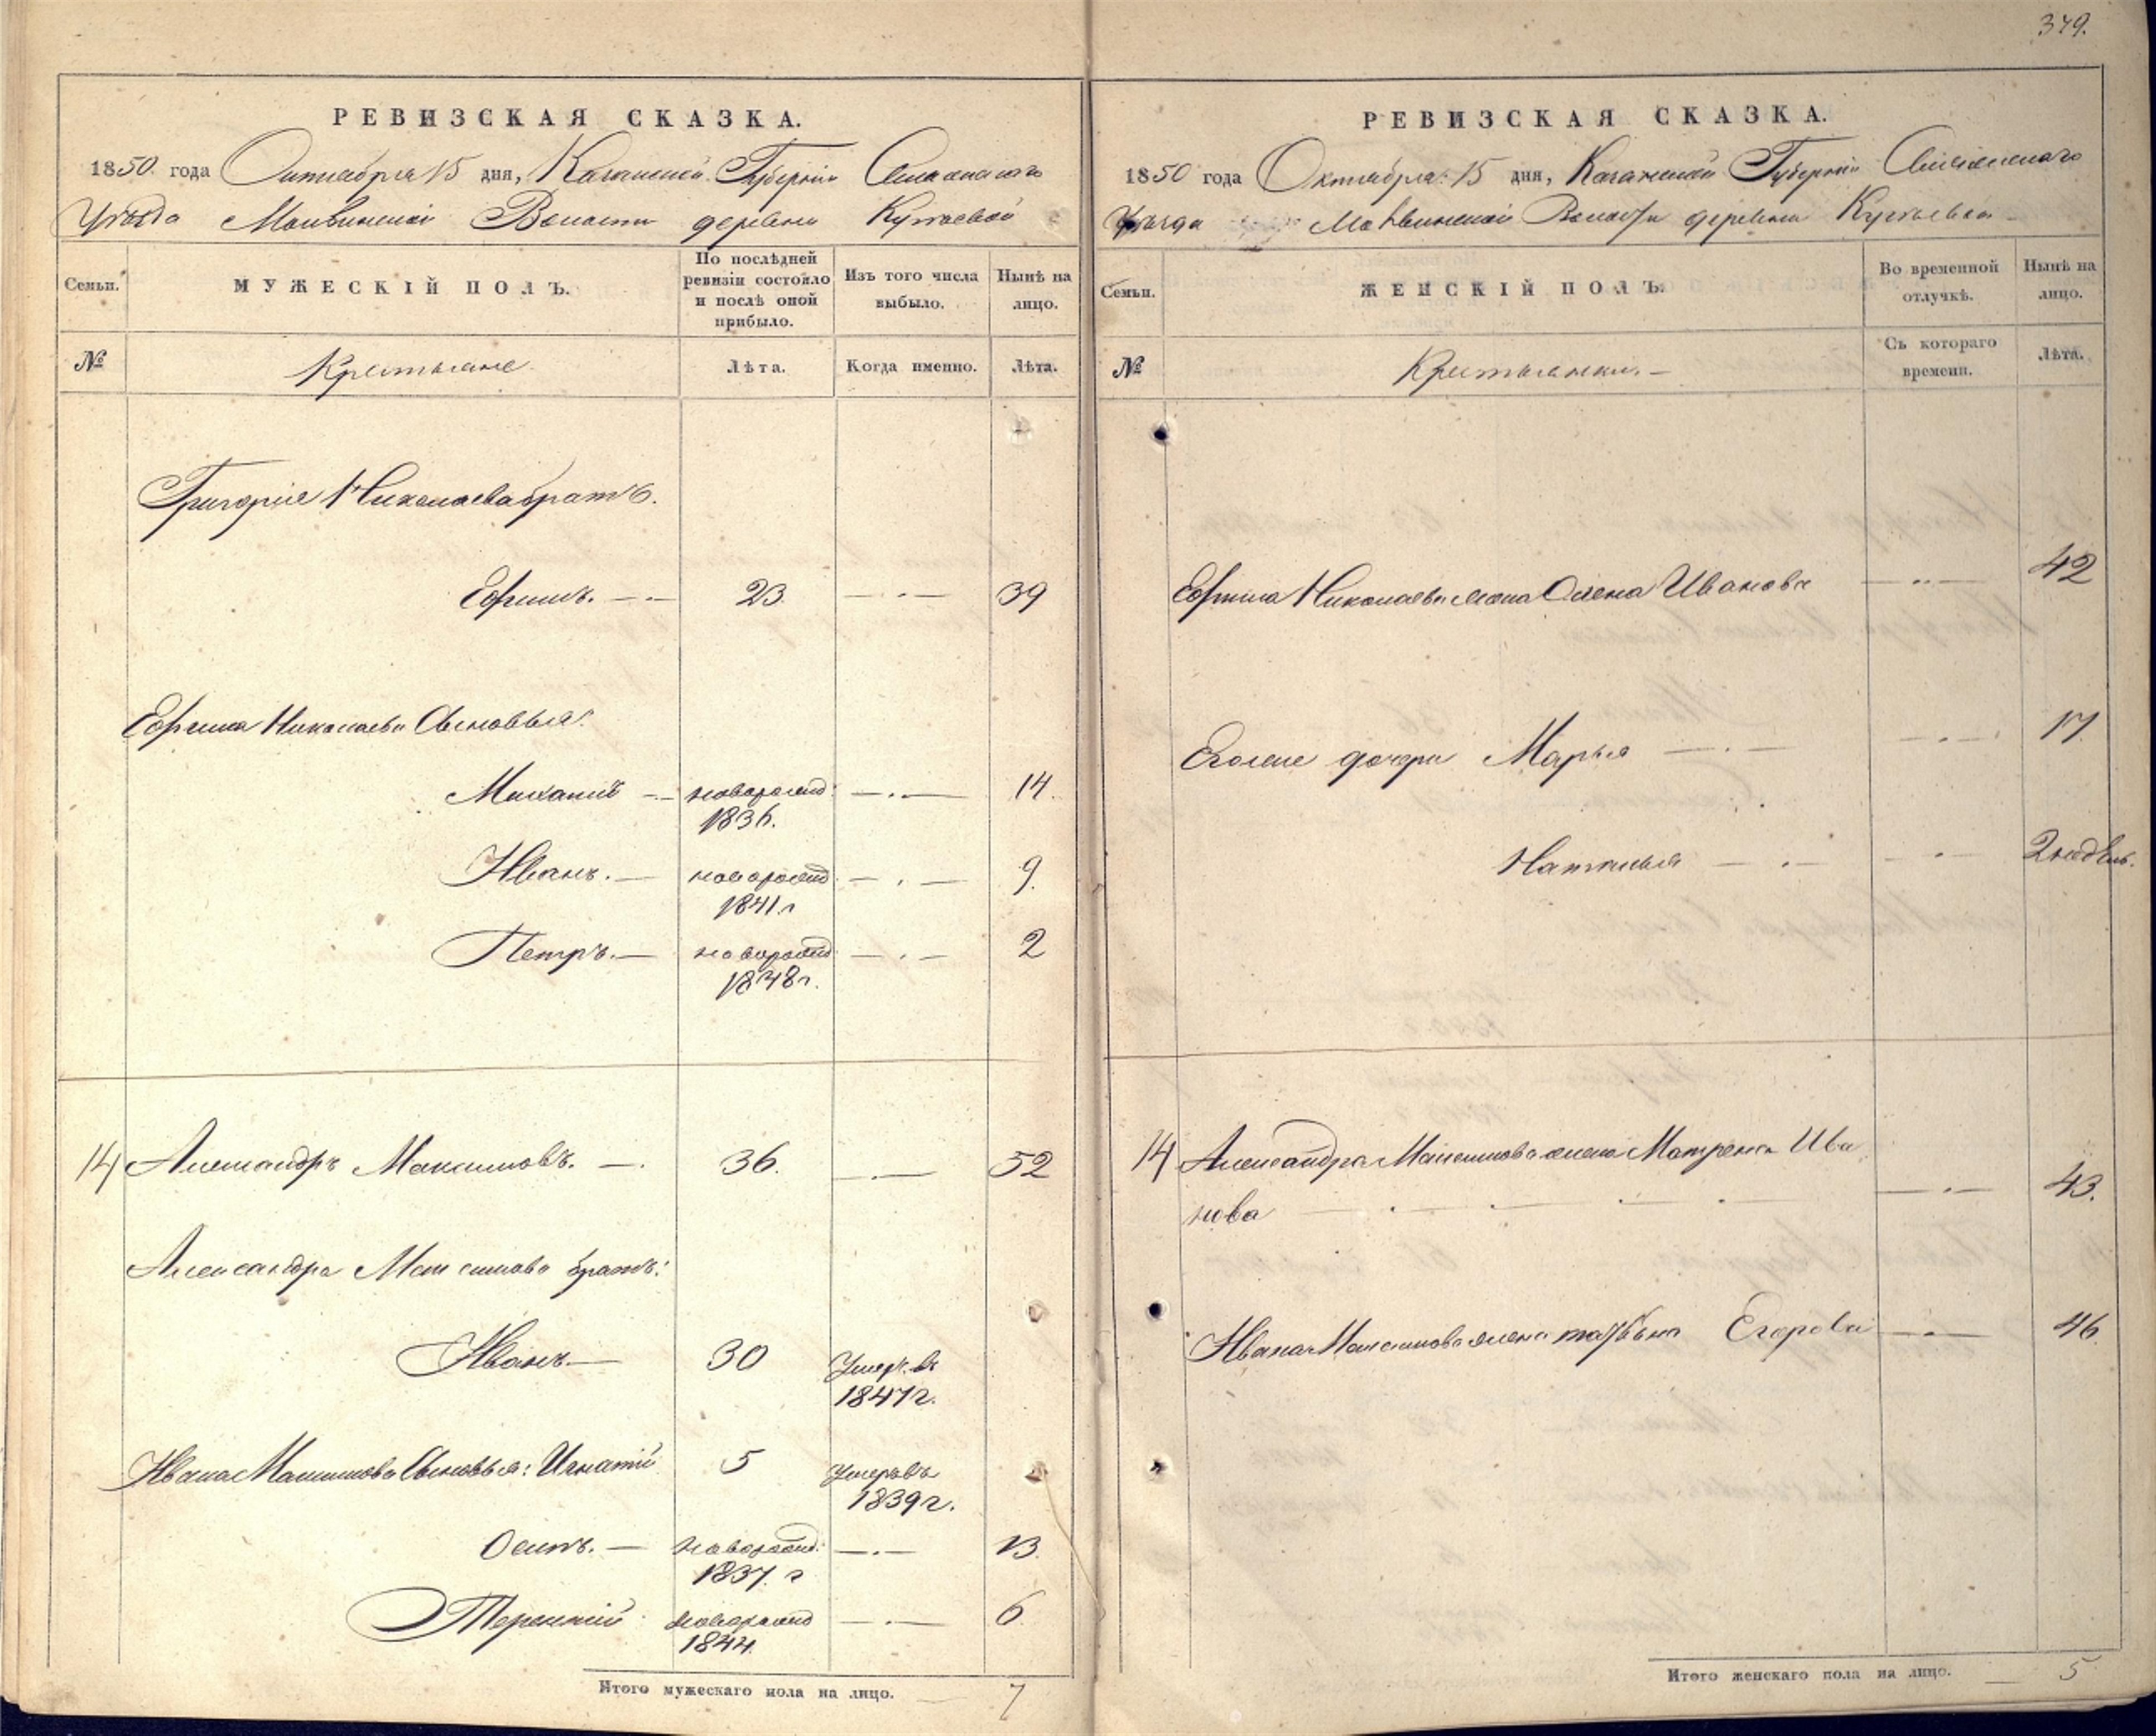 379.
РЕВИЗСКАЯ СКАЗКА.
1850 года Октября 15 дня, Казанской Губернiи
Уѣзда Волости деревни
Семьи.
МУЖЕСКIЙ ПОЛЪ.
По послѣдней ревизiи состояло и послѣ оной прибыло.
Изъ того числа выбыло.
Нынѣ на лицо.
№
Крестьяне
Лѣта.
Когда именно.
Лѣта.
Григорiя Николаева братъ.
Ефимъ. 23 39
Ефима Николаева Сыновья:
новорожд: 14.
1836.
Иванъ. новорожд: 9.
1841 г
Петръ. новорожд: 2
1848 г.
14 Александръ Максимовъ. 36. 52
Александра Максимова братъ:
Иванъ 30 Умеръ въ
1847 г.
Ивана Максимова Сыновья: Игнатiй 5 Умеръ въ
1839 г.
Осипъ. новорожд: 13.
1837. г
Терентiй новорожд 6
1844.
Итого мужескаго пола на лицо. 7
РЕВИЗСКАЯ СКАЗКА.
1850 года Октября 15 дня, Казанской Губернiи
Уѣзда Волости деревни
Семьи.
ЖЕНСКIЙ ПОЛЪ.
Во временной отлучкѣ.
Нынѣ на лицо.
№
Крестьянки.
Съ котораго времени.
Лѣта.
Ефима Николаева жена Олена Иванова 42
дочери Марья 17
Наталья 2 недѣль.
14 Александра Максимова жена Матрена Ива
нова 43.
Ивана Максимова жена Егорова 46
Итого женскаго пола на лицо. 5